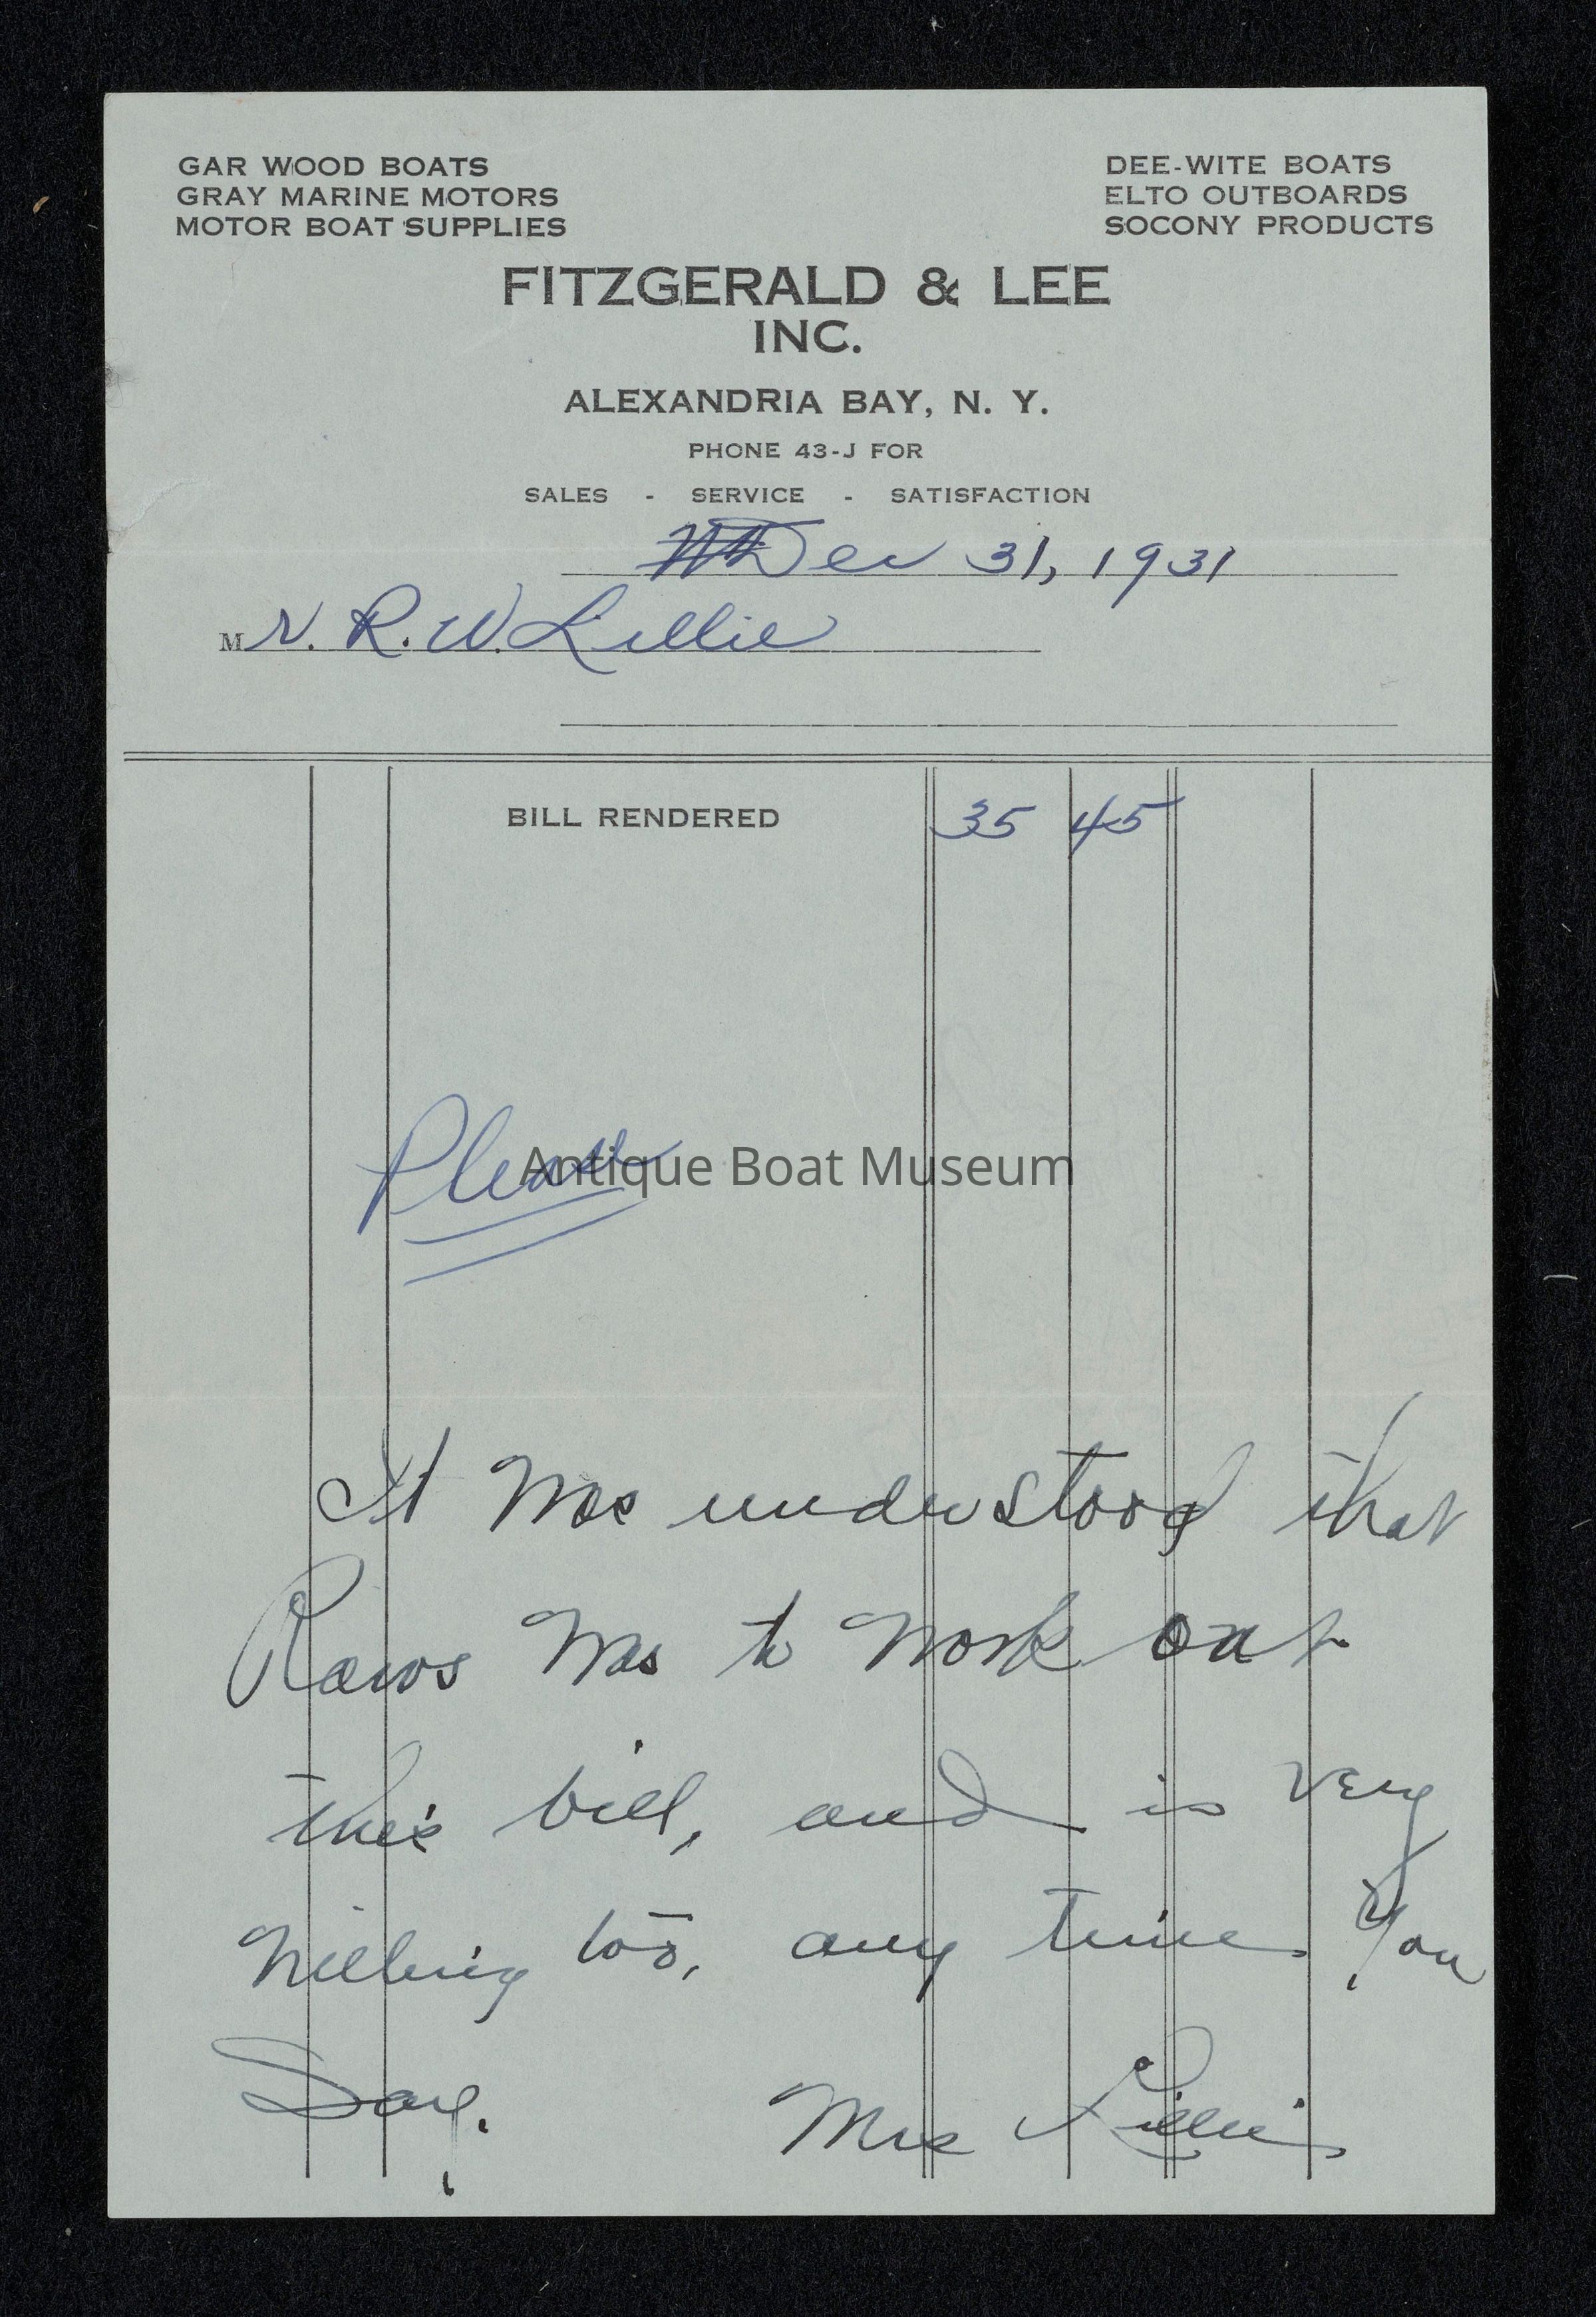 GAR WOOD BOATS
GRAY MARINE MOTORS
MOTOR BOAT SUPPLIES
DEE-WITE BOATS
ELTO OUTBOARDS
SOCONY PRODUCTS
FITZGERALD & LEE
INC.
ALEXANDRIA BAY, N. Y.
PHONE 43-J FOR
SALES - SERVICE - SATISFACTION
Dec 31, 1931
Mr. R. W. Lillie
BILL RENDERED 35 45
Please
Antique Boat Museum
It was understood that
was to work out
this bill, and is very
willing too, any time you
Say.
Mrs Lillie